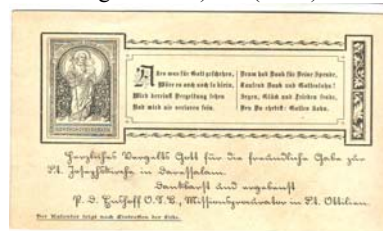 Alles was für Gott geschehen,
Wäre es auch noch so klein,
Wird dereinst Vergeltung sehen
Und wird nie verloren sein.
Drum hab Dank für Deine Spende,
Tausend Dank und Gotteslohn!
Segen, Glück und Frieden sende,
Den Du ehrtest: Gottes Sohn.
Herzliches Vergelts Gott für die freundliche Gabe zur
St. Josephskirche in Daressalam.
Dankbarst und ergebenst
P. D. O.S.B., Missionsprocurator in St. Ottilien.
Der Kalender folgt nach Eintreffen der